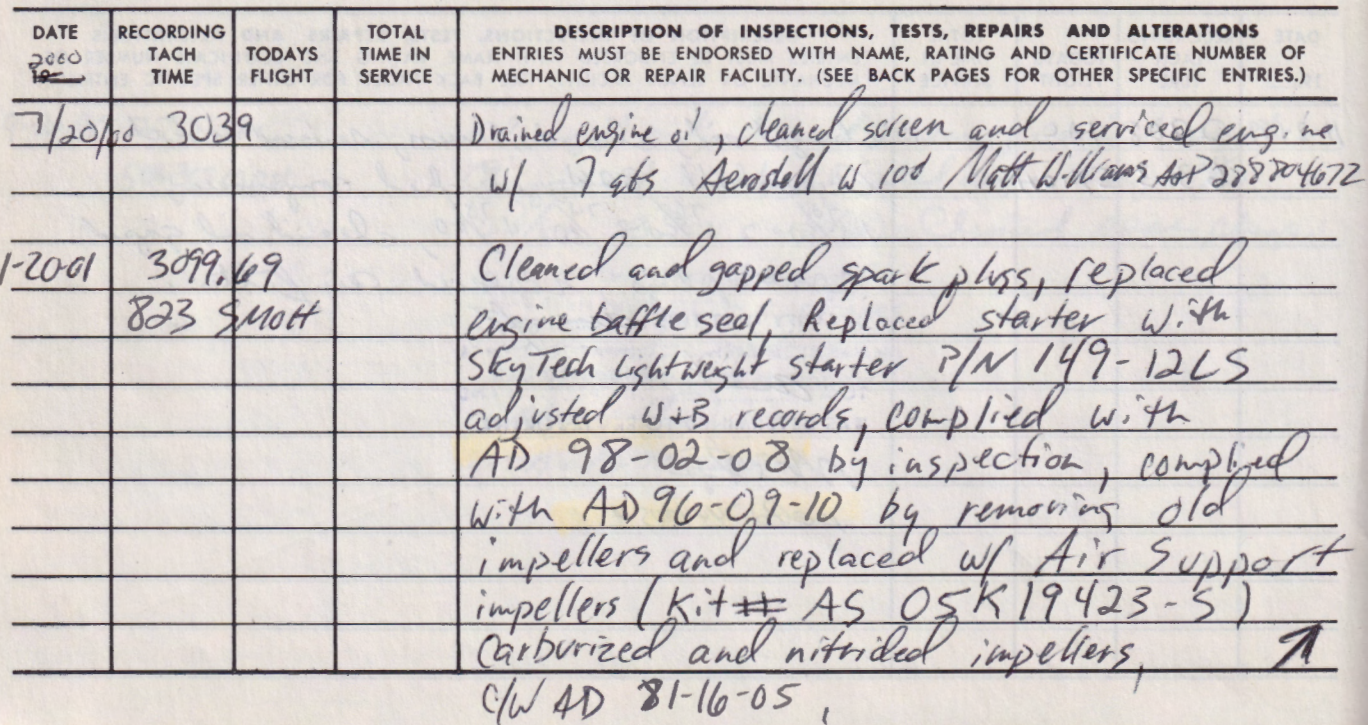 DATE RECORDING TODAYS TOTAL DESCRIPTION OF INSPECTIONS, TESTS, REPAIRS AND ALTERATIONS
2000 TACH FLIGHT TIME IN ENTRIES MUST BE ENDORSED WITH NAME, RATING AND CERTIFICATE NUMBER OF
19 TIME SERVICE MECHANIC OR REPAIR FACILITY. (SEE BACK PAGES FOR OTHER SPECIFIC ENTRIES.)
7/20/00 3039 Drained engine oil, cleaned screen and serviced engine
w/ 7 qts Aeroshell W 100 Matt Williams A&P 288804672
1-20-01 3099.69 Cleaned and gapped spark plugs, replaced
823 SMOH engine baffle seal, Replaced starter with
SkyTech Lightweight starter P/N 149-12LS
adjusted W+B records, complied with
AD 98-02-08 by inspection, complied
with AD 96-09-10 by removing old
impellers and replaced w/ Air Support
impellers (Kit # AS 05K19423-S)
Carburized and nitrided impellers,
C/W AD 81-16-05,